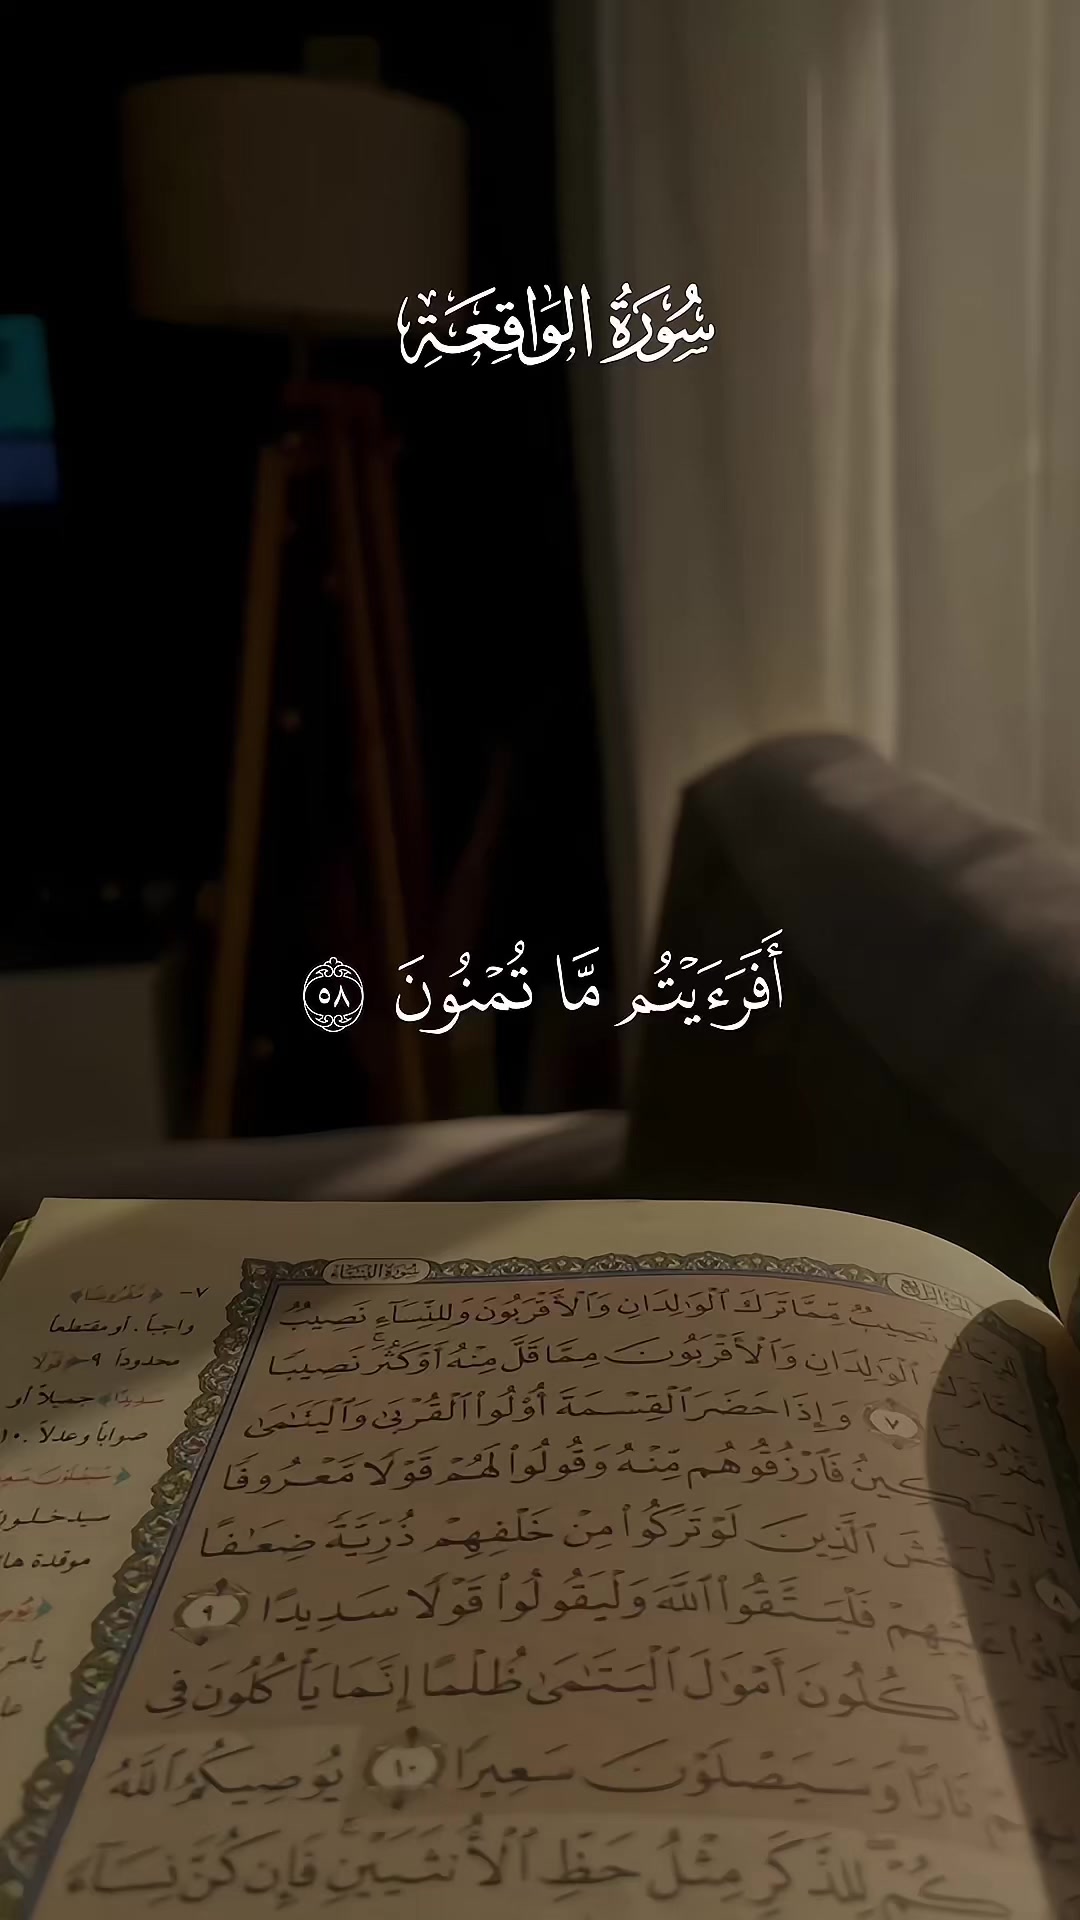 سُورَةُ الوَاقِعَةِ
أَفَرَءَيْتُم مَّا تُمْنُونَ ٥٨
سُورَةُ النِّسَاءِ
نَصِيبٌ مِّمَّا تَرَكَ ٱلْوَٰلِدَانِ وَٱلْأَقْرَبُونَ وَلِلنِّسَآءِ نَصِيبٌ
ٱلْوَٰلِدَانِ وَٱلْأَقْرَبُونَ مِمَّا قَلَّ مِنْهُ أَوْ كَثُرَ ۚ نَصِيبًا
مَّفْرُوضًا ٧ وَإِذَا حَضَرَ ٱلْقِسْمَةَ أُو۟لُوا۟ ٱلْقُرْبَىٰ وَٱلْيَتَٰمَىٰ
وَٱلْمَسَٰكِينُ فَٱرْزُقُوهُم مِّنْهُ وَقُولُوا۟ لَهُمْ قَوْلًا مَّعْرُوفًا
٨ وَلْيَخْشَ ٱلَّذِينَ لَوْ تَرَكُوا۟ مِنْ خَلْفِهِمْ ذُرِّيَّةً ضِعَٰفًا
خَافُوا۟ عَلَيْهِمْ فَلْيَتَّقُوا۟ ٱللَّهَ وَلْيَقُولُوا۟ قَوْلًا سَدِيدًا ٩
يَأْكُلُونَ أَمْوَٰلَ ٱلْيَتَٰمَىٰ ظُلْمًا إِنَّمَا يَأْكُلُونَ فِى
نَارًا ۖ وَسَيَصْلَوْنَ سَعِيرًا ١٠ يُوصِيكُمُ ٱللَّهُ
لِلذَّكَرِ مِثْلُ حَظِّ ٱلْأُنثَيَيْنِ ۚ فَإِن كُنَّ نِسَآءً
٧- ﴿مَفْرُوضًا﴾
واجباً. أو مقتطعاً
محدوداً ٩- ﴿قولا
سديدًا﴾ جميلاً أو
صواباً وعدلاً. ١٠
سيدخلون
موقدة